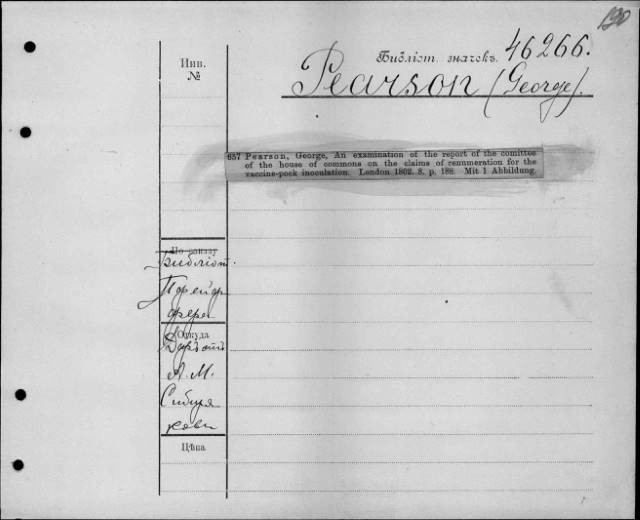 190
Библіот. значекъ 46266.
Инв.
№
Pearson (George).
657 Pearson, George, An examination of the report of the comittee
of the house of commons on the claims of renumeration for the
vaccine-pock inoculation. London 1802. 8. p. 188. Mit 1 Abbildung.
По заказу
Библіот.
Пфейф
фера
Откуда
Даръ отъ
А. М.
Сибиря
кова
Цѣна